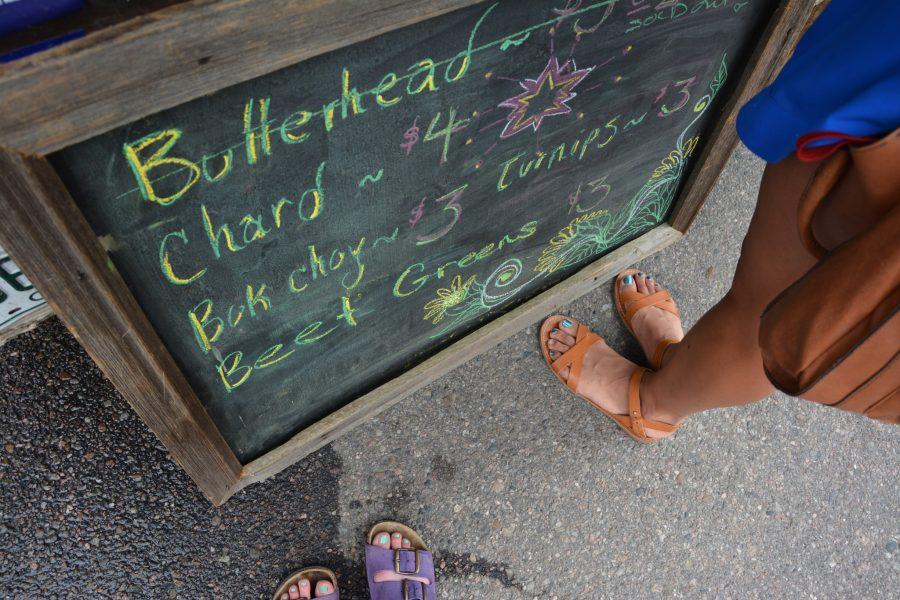 Butterhead ~ $3
Chard ~ $4
Bok choy ~ $3 Turnips ~ $3
Beet Greens $3